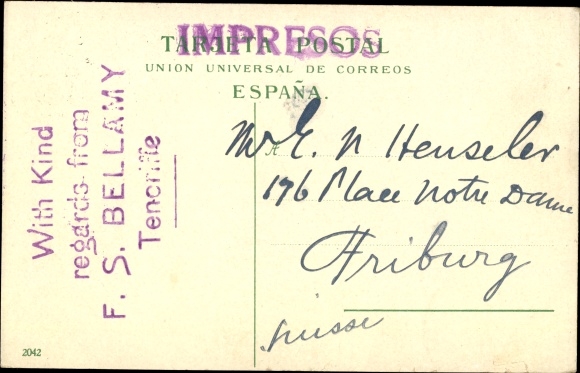 IMPRESOS
TARJETA POSTAL
UNION UNIVERSAL DE CORREOS
ESPAÑA.
With Kind
regards from
F. S. BELLAMY
Teneriffe
Mr E. N Henseler
176 Place Notre Dame
Friburg
Suisse
2042